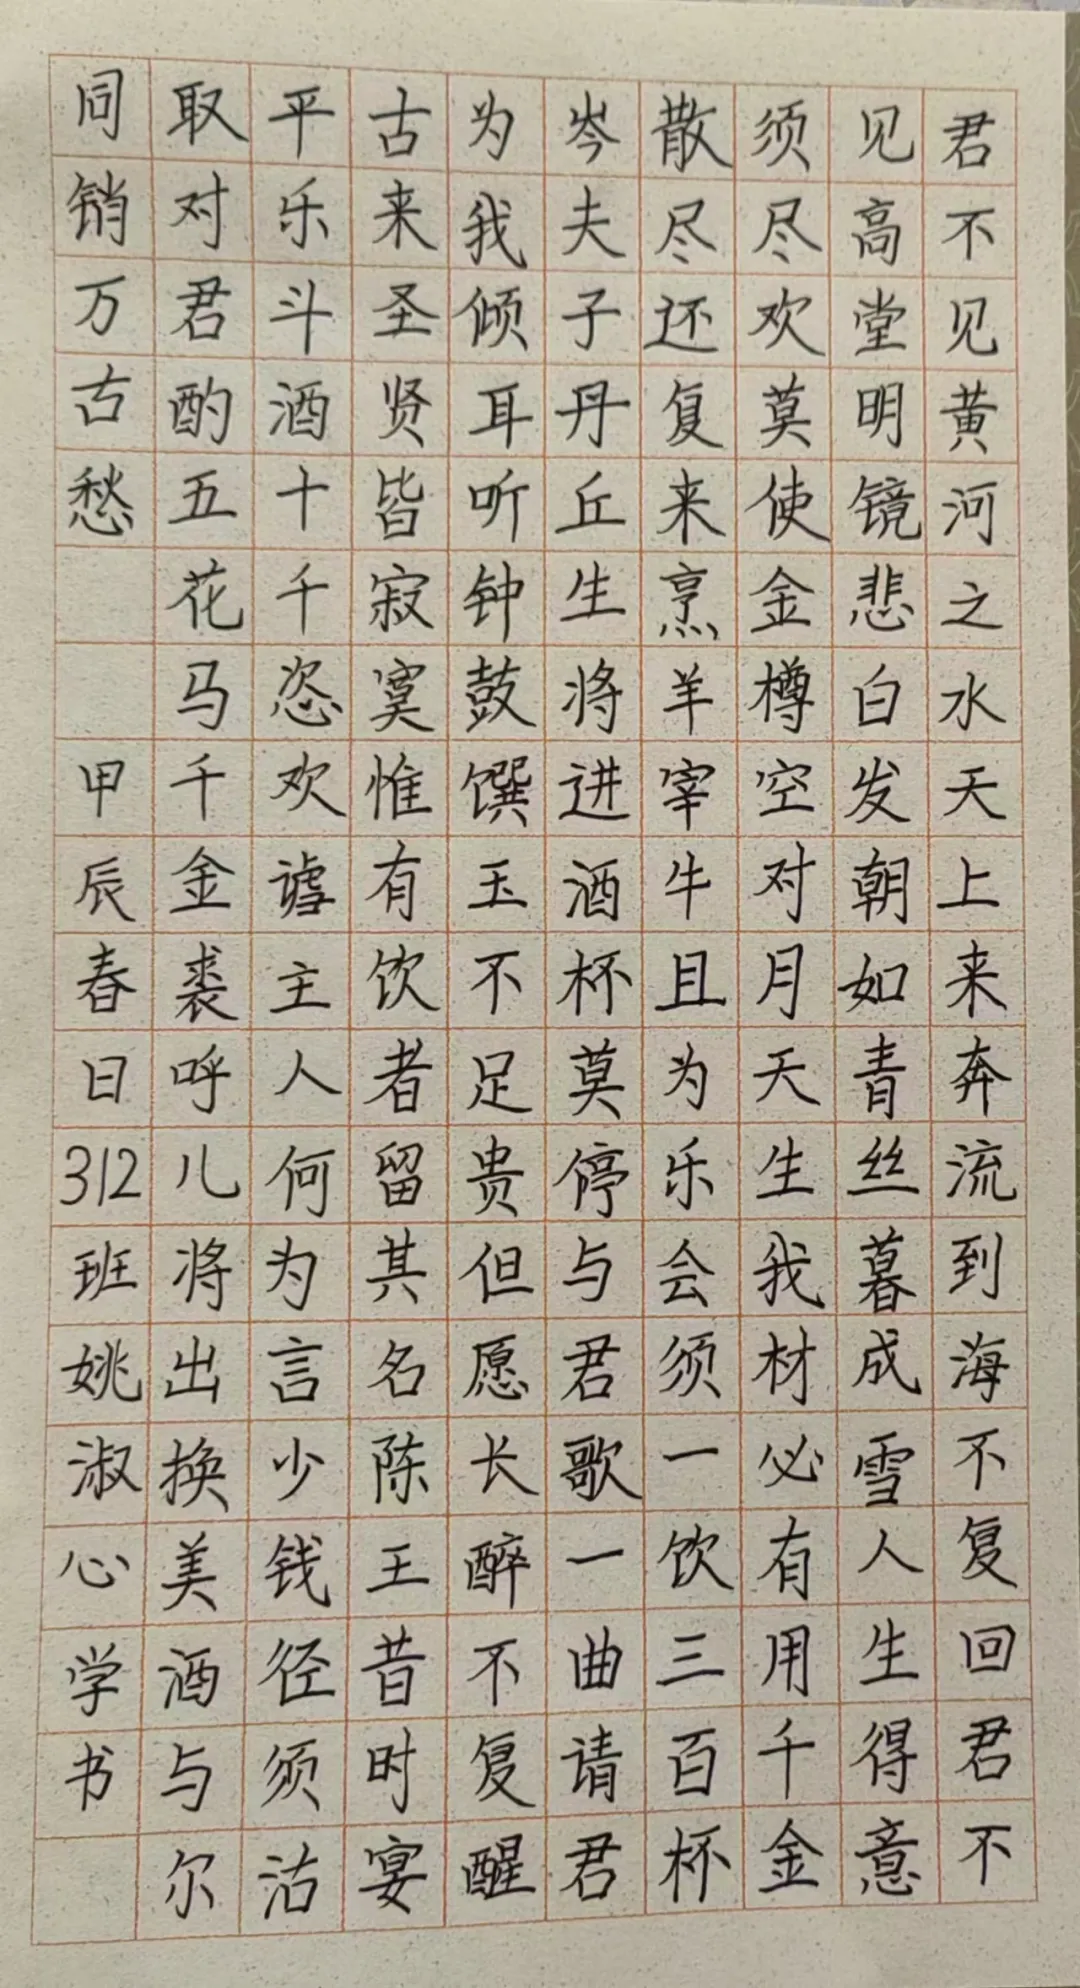 君不见黄河之水天上来奔流到海不复回君不
见高堂明镜悲白发朝如青丝暮成雪人生得意
须尽欢莫使金樽空对月天生我材必有用千金
散尽还复来烹羊宰牛且为乐会须一饮三百杯
岑夫子丹丘生将进酒杯莫停与君歌一曲请君
为我倾耳听钟鼓馔玉不足贵但愿长醉不复醒
古来圣贤皆寂寞惟有饮者留其名陈王昔时宴
平乐斗酒十千恣欢谑主人何为言少钱径须沽
取对君酌五花马千金裘呼儿将出换美酒与尔
同销万古愁 甲辰春日312班姚淑心学书